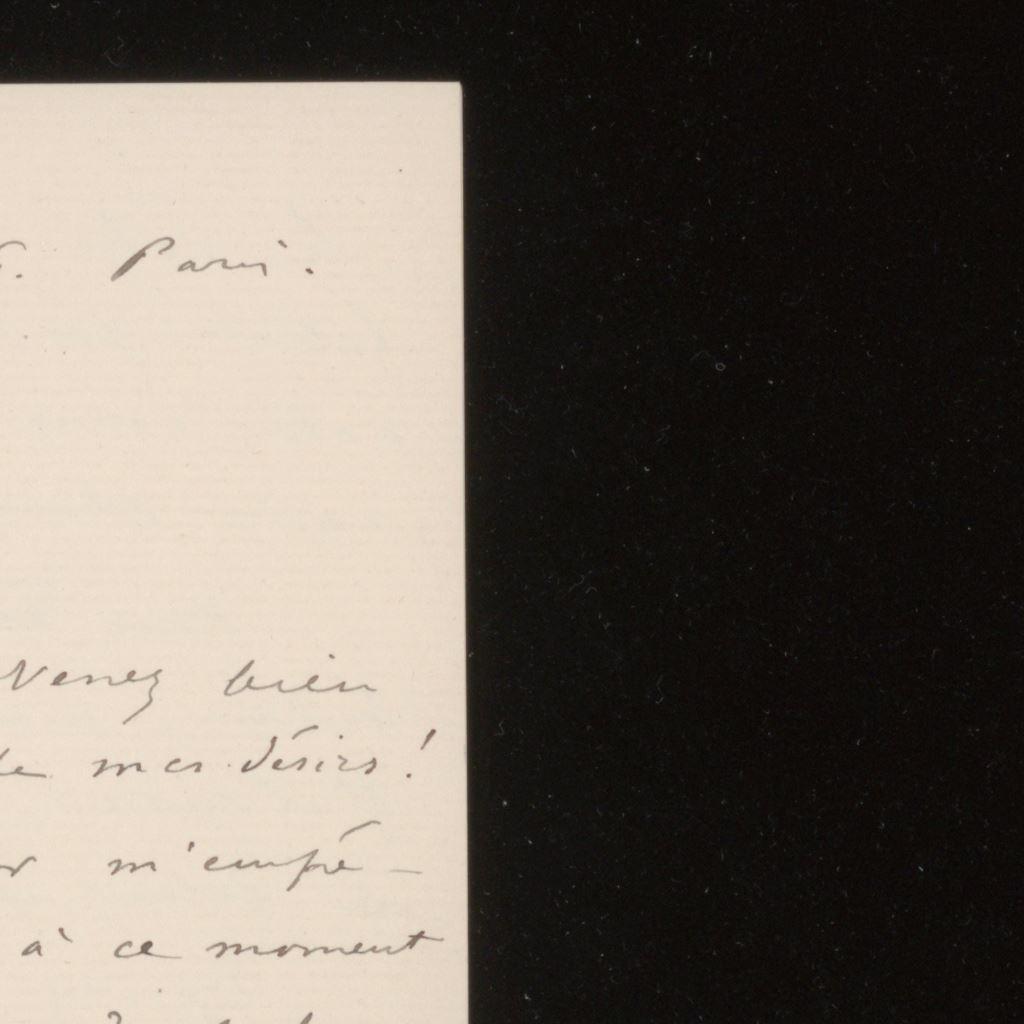 Paris.
Venez bien
de mes désirs !
m'empé-
à ce moment